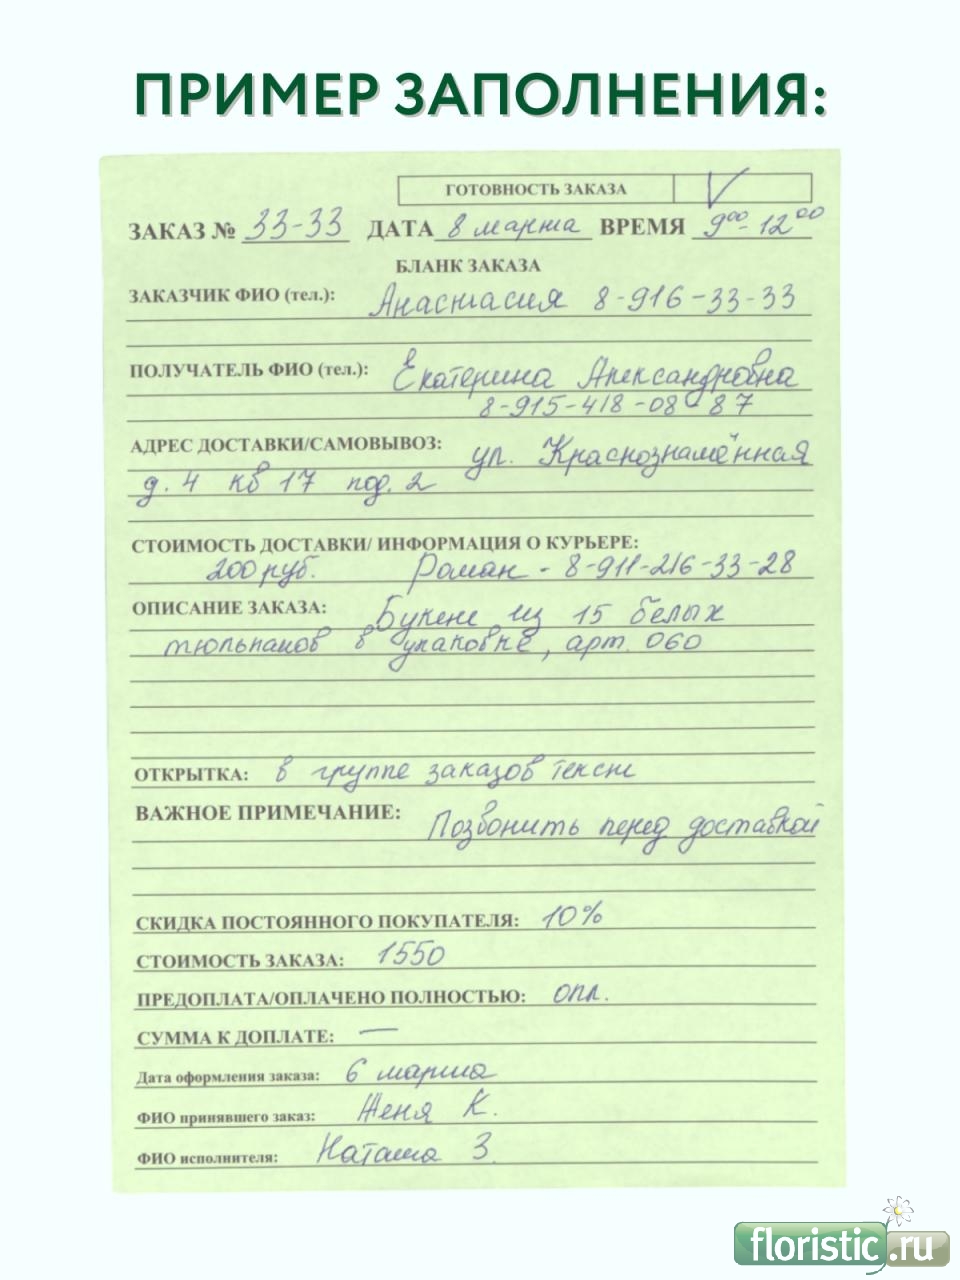 ПРИМЕР ЗАПОЛНЕНИЯ:
ГОТОВНОСТЬ ЗАКАЗА V
ЗАКАЗ № 33-33 ДАТА 8 марта ВРЕМЯ 9⁰⁰-12⁰⁰
БЛАНК ЗАКАЗА
ЗАКАЗЧИК ФИО (тел.): Анастасия 8-916-33-33
ПОЛУЧАТЕЛЬ ФИО (тел.): Екатерина Александровна
8-915-418-08-87
АДРЕС ДОСТАВКИ/САМОВЫВОЗ: ул. Краснознамённая
д. 4 кв 17 под. 2
СТОИМОСТЬ ДОСТАВКИ/ ИНФОРМАЦИЯ О КУРЬЕРЕ:
200 руб. Роман - 8-911-216-33-28
ОПИСАНИЕ ЗАКАЗА: Букет из 15 белых
тюльпанов в упаковке, арт. 060
ОТКРЫТКА: в группе заказов текст
ВАЖНОЕ ПРИМЕЧАНИЕ: Позвонить перед доставкой
СКИДКА ПОСТОЯННОГО ПОКУПАТЕЛЯ: 10%
СТОИМОСТЬ ЗАКАЗА: 1550
ПРЕДОПЛАТА/ОПЛАЧЕНО ПОЛНОСТЬЮ: опл.
СУММА К ДОПЛАТЕ: —
Дата оформления заказа: 6 марта
ФИО принявшего заказ: Женя К.
ФИО исполнителя: Наташа З.
floristic.ru